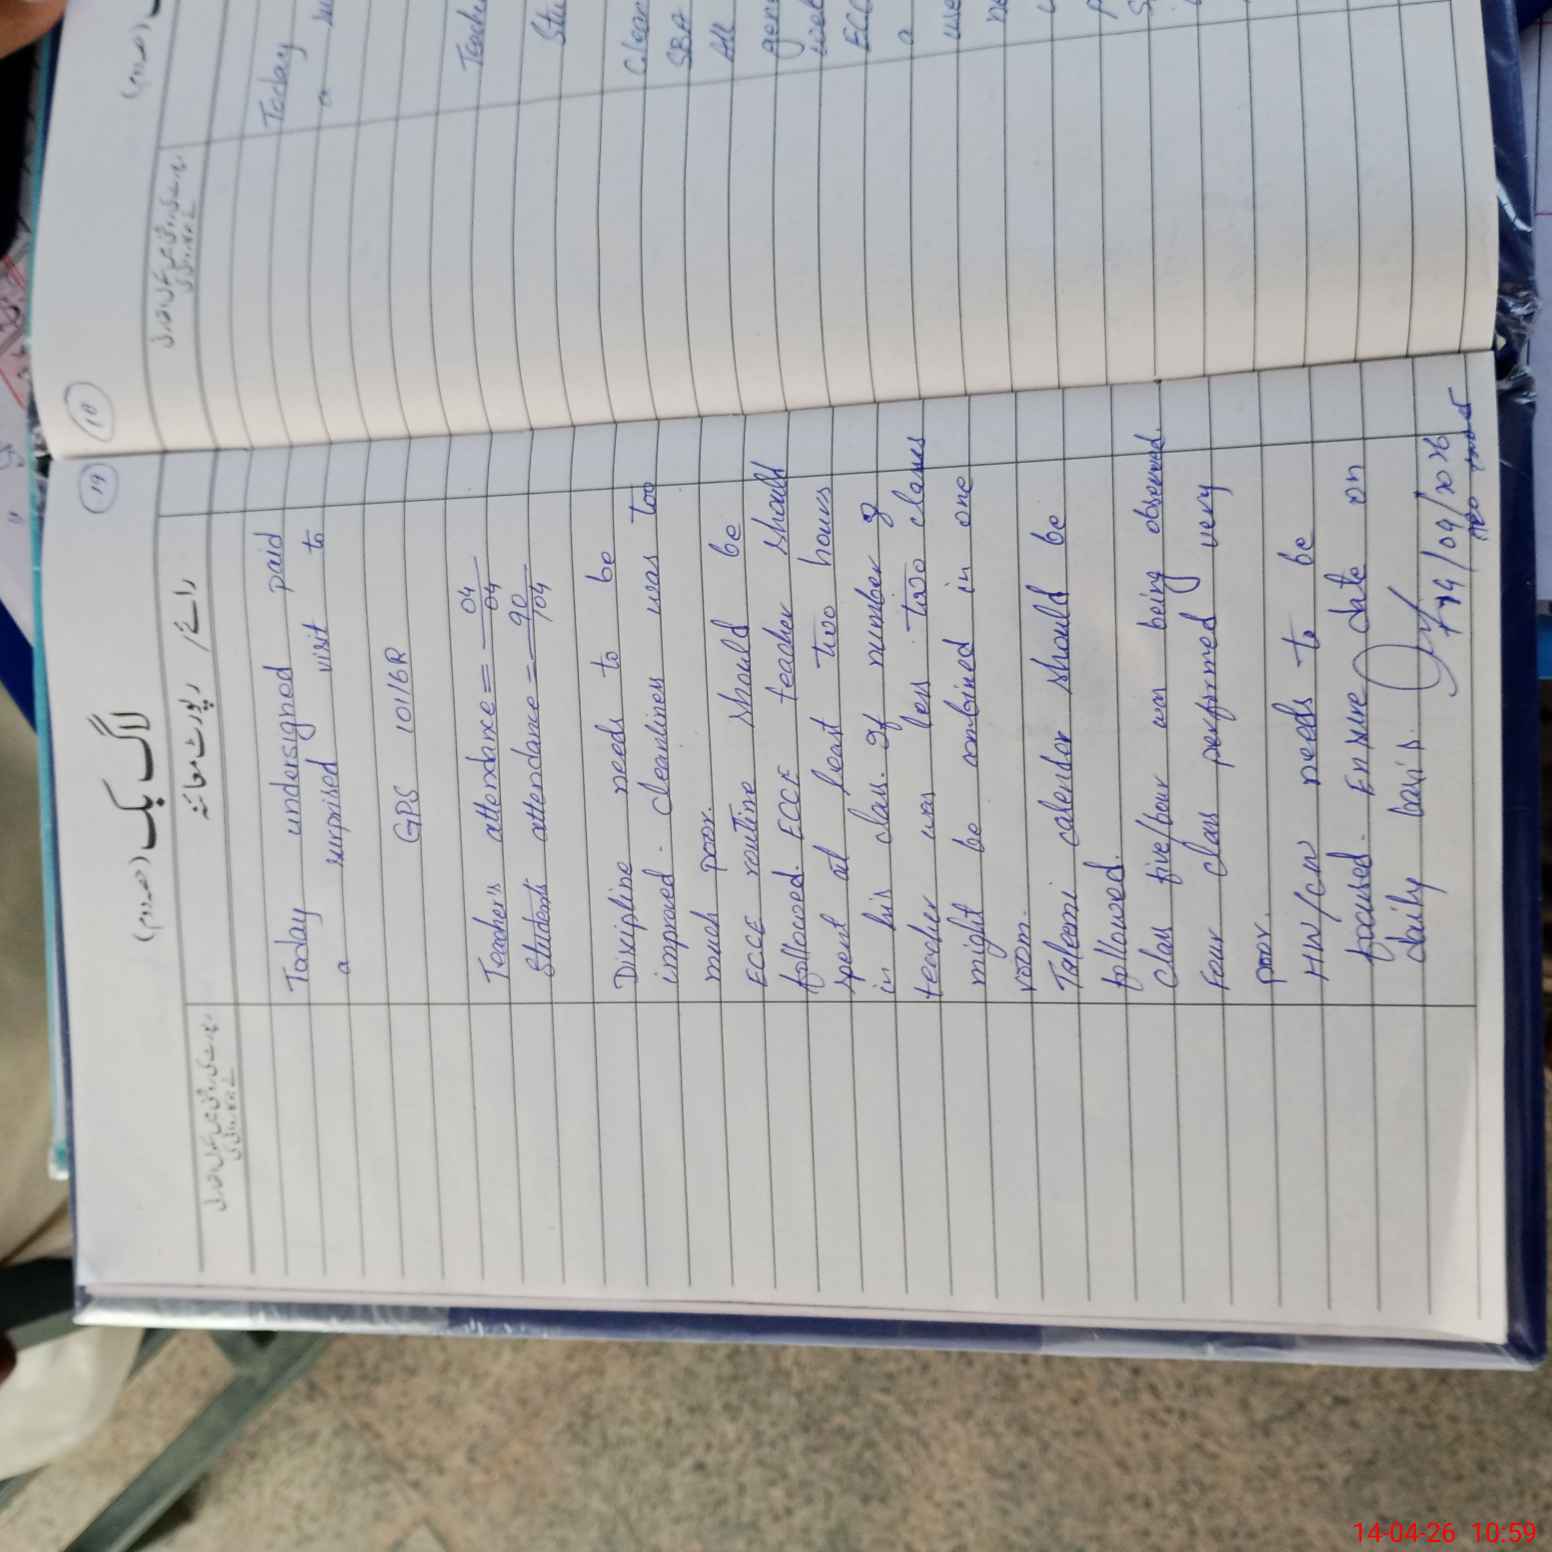 19
لاگ بک (حصہ دوم)
رائے / رپورٹ معائنہ
Today undersigned paid
a surprised visit to
GPS 101/6R
Teacher's attendance = 04/04
Students attendance = 90/104
Discipline needs to be
improved. cleanliness was too
much poor.
ECCE routine should be
followed. ECCE teacher should
spent at least two hours
in his class. If number of
teacher was less. two classes
might be combined in one
room.
Taleemi calender should be
followed.
Class five/four was being observed.
Four class performed very
poor.
HW/CW needs to be
focused. Ensure date on
daily basis.
14/04/2026
18
Today
a
Teache
Stu
Clean
SBA
All
gen
ECC
a
14-04-26 10:59